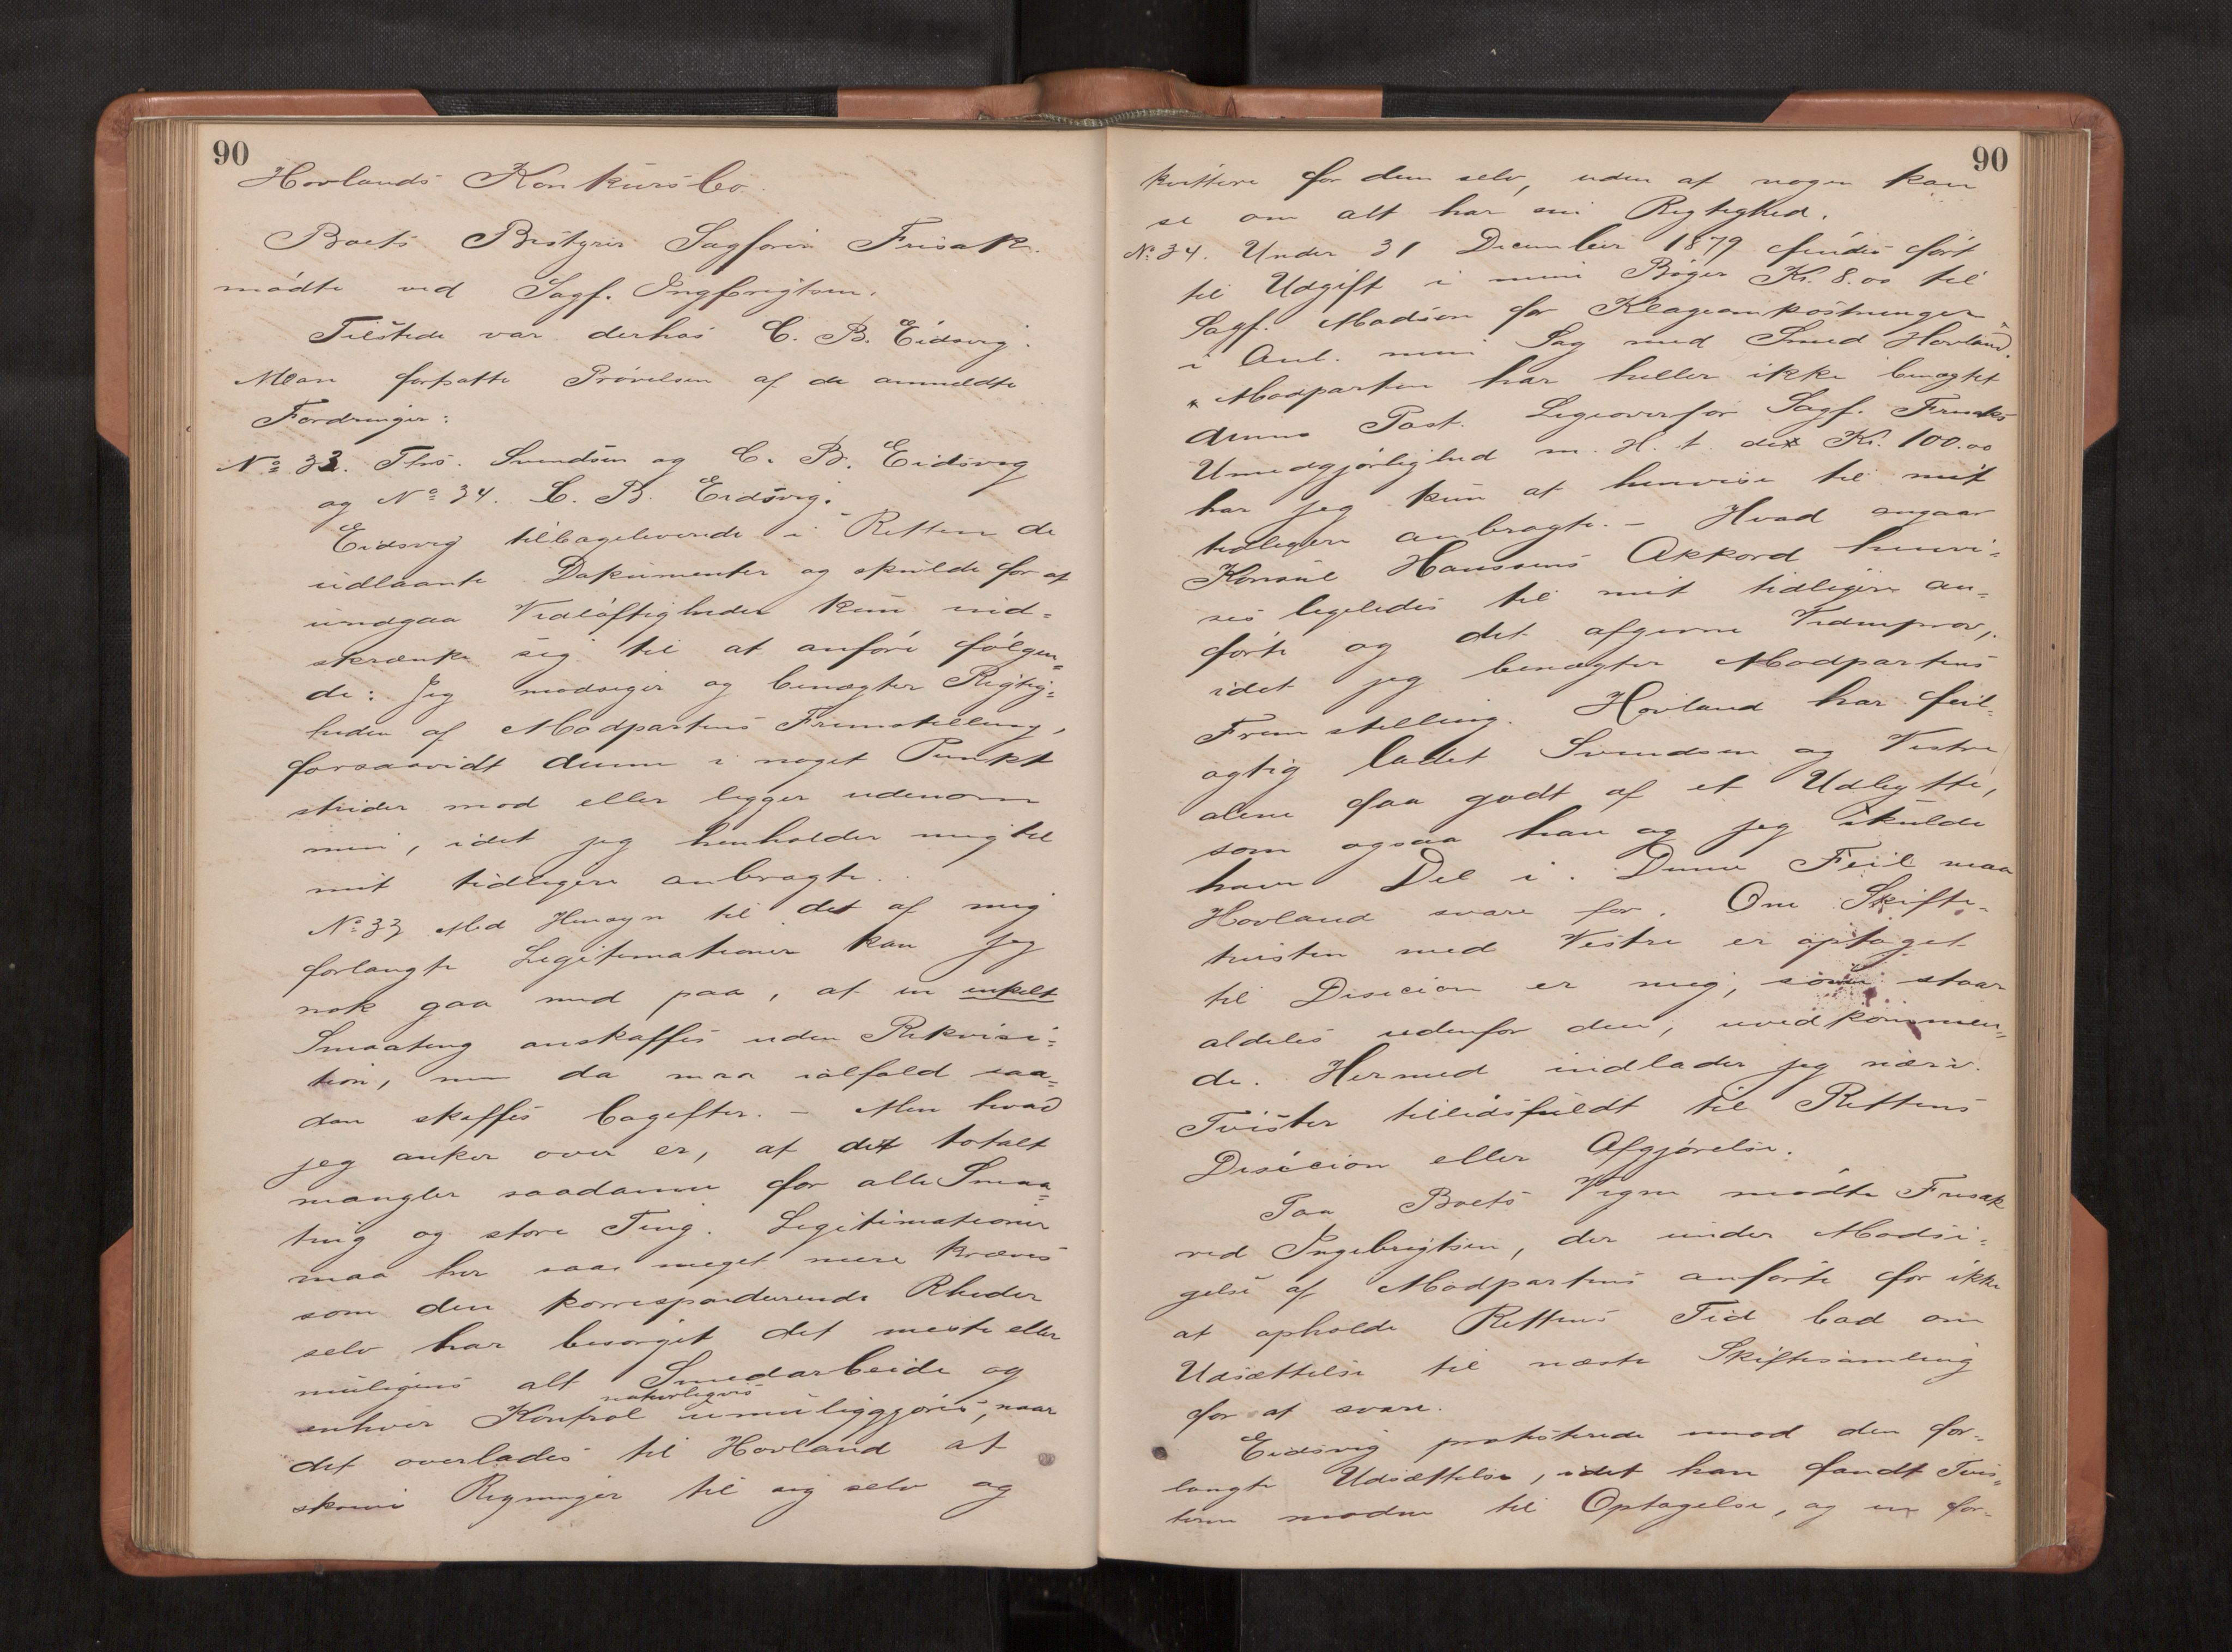 90
Hovlands Konkursbo.
Boets Bestyrer Sagfører Frisak
mødte ved Sagf. Ingebrigtsen.
Tilstede var derhos C. B. Eidsvig.
Man fortsatte Prøvelsen af de anmeldte
Fordringer:
No 33. Ths. Svendsen og C. B. Eidsvig
og No 34. C. B. Eidsvig.
Eidsvig tilbageleverede i Retten de
udlaante Dokumenter og skulde for at
undgaa Vidløftigheder kun ind=
skrænke sig til at anføre følgen=
de: Jeg modsiger og benægter Rigtig=
heden af Modpartens Fremstilling,
forsaavidt denne i noget Punkt
strider mod eller ligger udenom
min, idet jeg henholder mig til
mit tidligere anbragte.
No 33 Med Hensyn til det af mig
forlangte Legitimationer kan jeg
nok gaa med paa, at en enkelt
Smaating anskaffes uden Rekvisi=
tion, men da maa ialfald saa=
dan skaffes bagefter. – Men hvad
jeg anker over er, at det totalt
mangler saadanne for alle Smaa=
ting og store Ting. Legitimationer
maa her saa meget mere kræves
som den korresponderende Rheder
selv har besørget det meste eller
muligens alt Smedarbeide og
enhver Kontrol naturligvis umuliggjøres, naar
det overlades til Hovland at
skrive Regninger til sig selv og
90
kvittere for dem selv, uden at nogen kan
se om alt har sin Rigtighed.
No 34. Under 31 December 1879 findes ført
til Udgift i mine Bøger Kr. 8.00 til
Sagf. Madsen for Klageomkostninger
i Anl. min Sag med Smed Hovland.
Modparten har heller ikke benægtet
denne Post. Ligeoverfor Sagf. Frisaks
Umedgjørlighed m. H. t. de Kr. 100.00
har jeg kun at henvise til mit
tidligere anbragte. – Hvad angaar
Konsul Hanssens Akkord henvi=
ses ligeledes til mit tidligere an=
førte og det afgivne Vidneprov,
idet jeg benægter Modpartens
Fremstilling. Hovland har feil=
agtig ladet Svendsen og Vestre
alene faa godt af et Udbytte,
som ogsaa han og jeg skulde
have Del i. Denne Feil maa
Hovland svare for. Om Skifte=
tvisten med Vestre er optaget
til Decision er mig, som staar
aldeles udenfor den, uvedkommen=
de. Hermed indlader jeg nærv.
Tvister tillidsfuldt til Rettens
Disicion eller Afgjørelse.
Paa Boets Vegne mødte Frisak
ved Ingebrigtsen, der under Modsi=
gelse af Modpartens anførte for ikke
at opholde Rettens Tid bad om
Udsættelse til næste Skiftesamling
for at svare.
Eidsvig protesterede mod den for=
langte Udsættelse, idet han fandt Tvis=
terne modne til Optagelse, og en for-